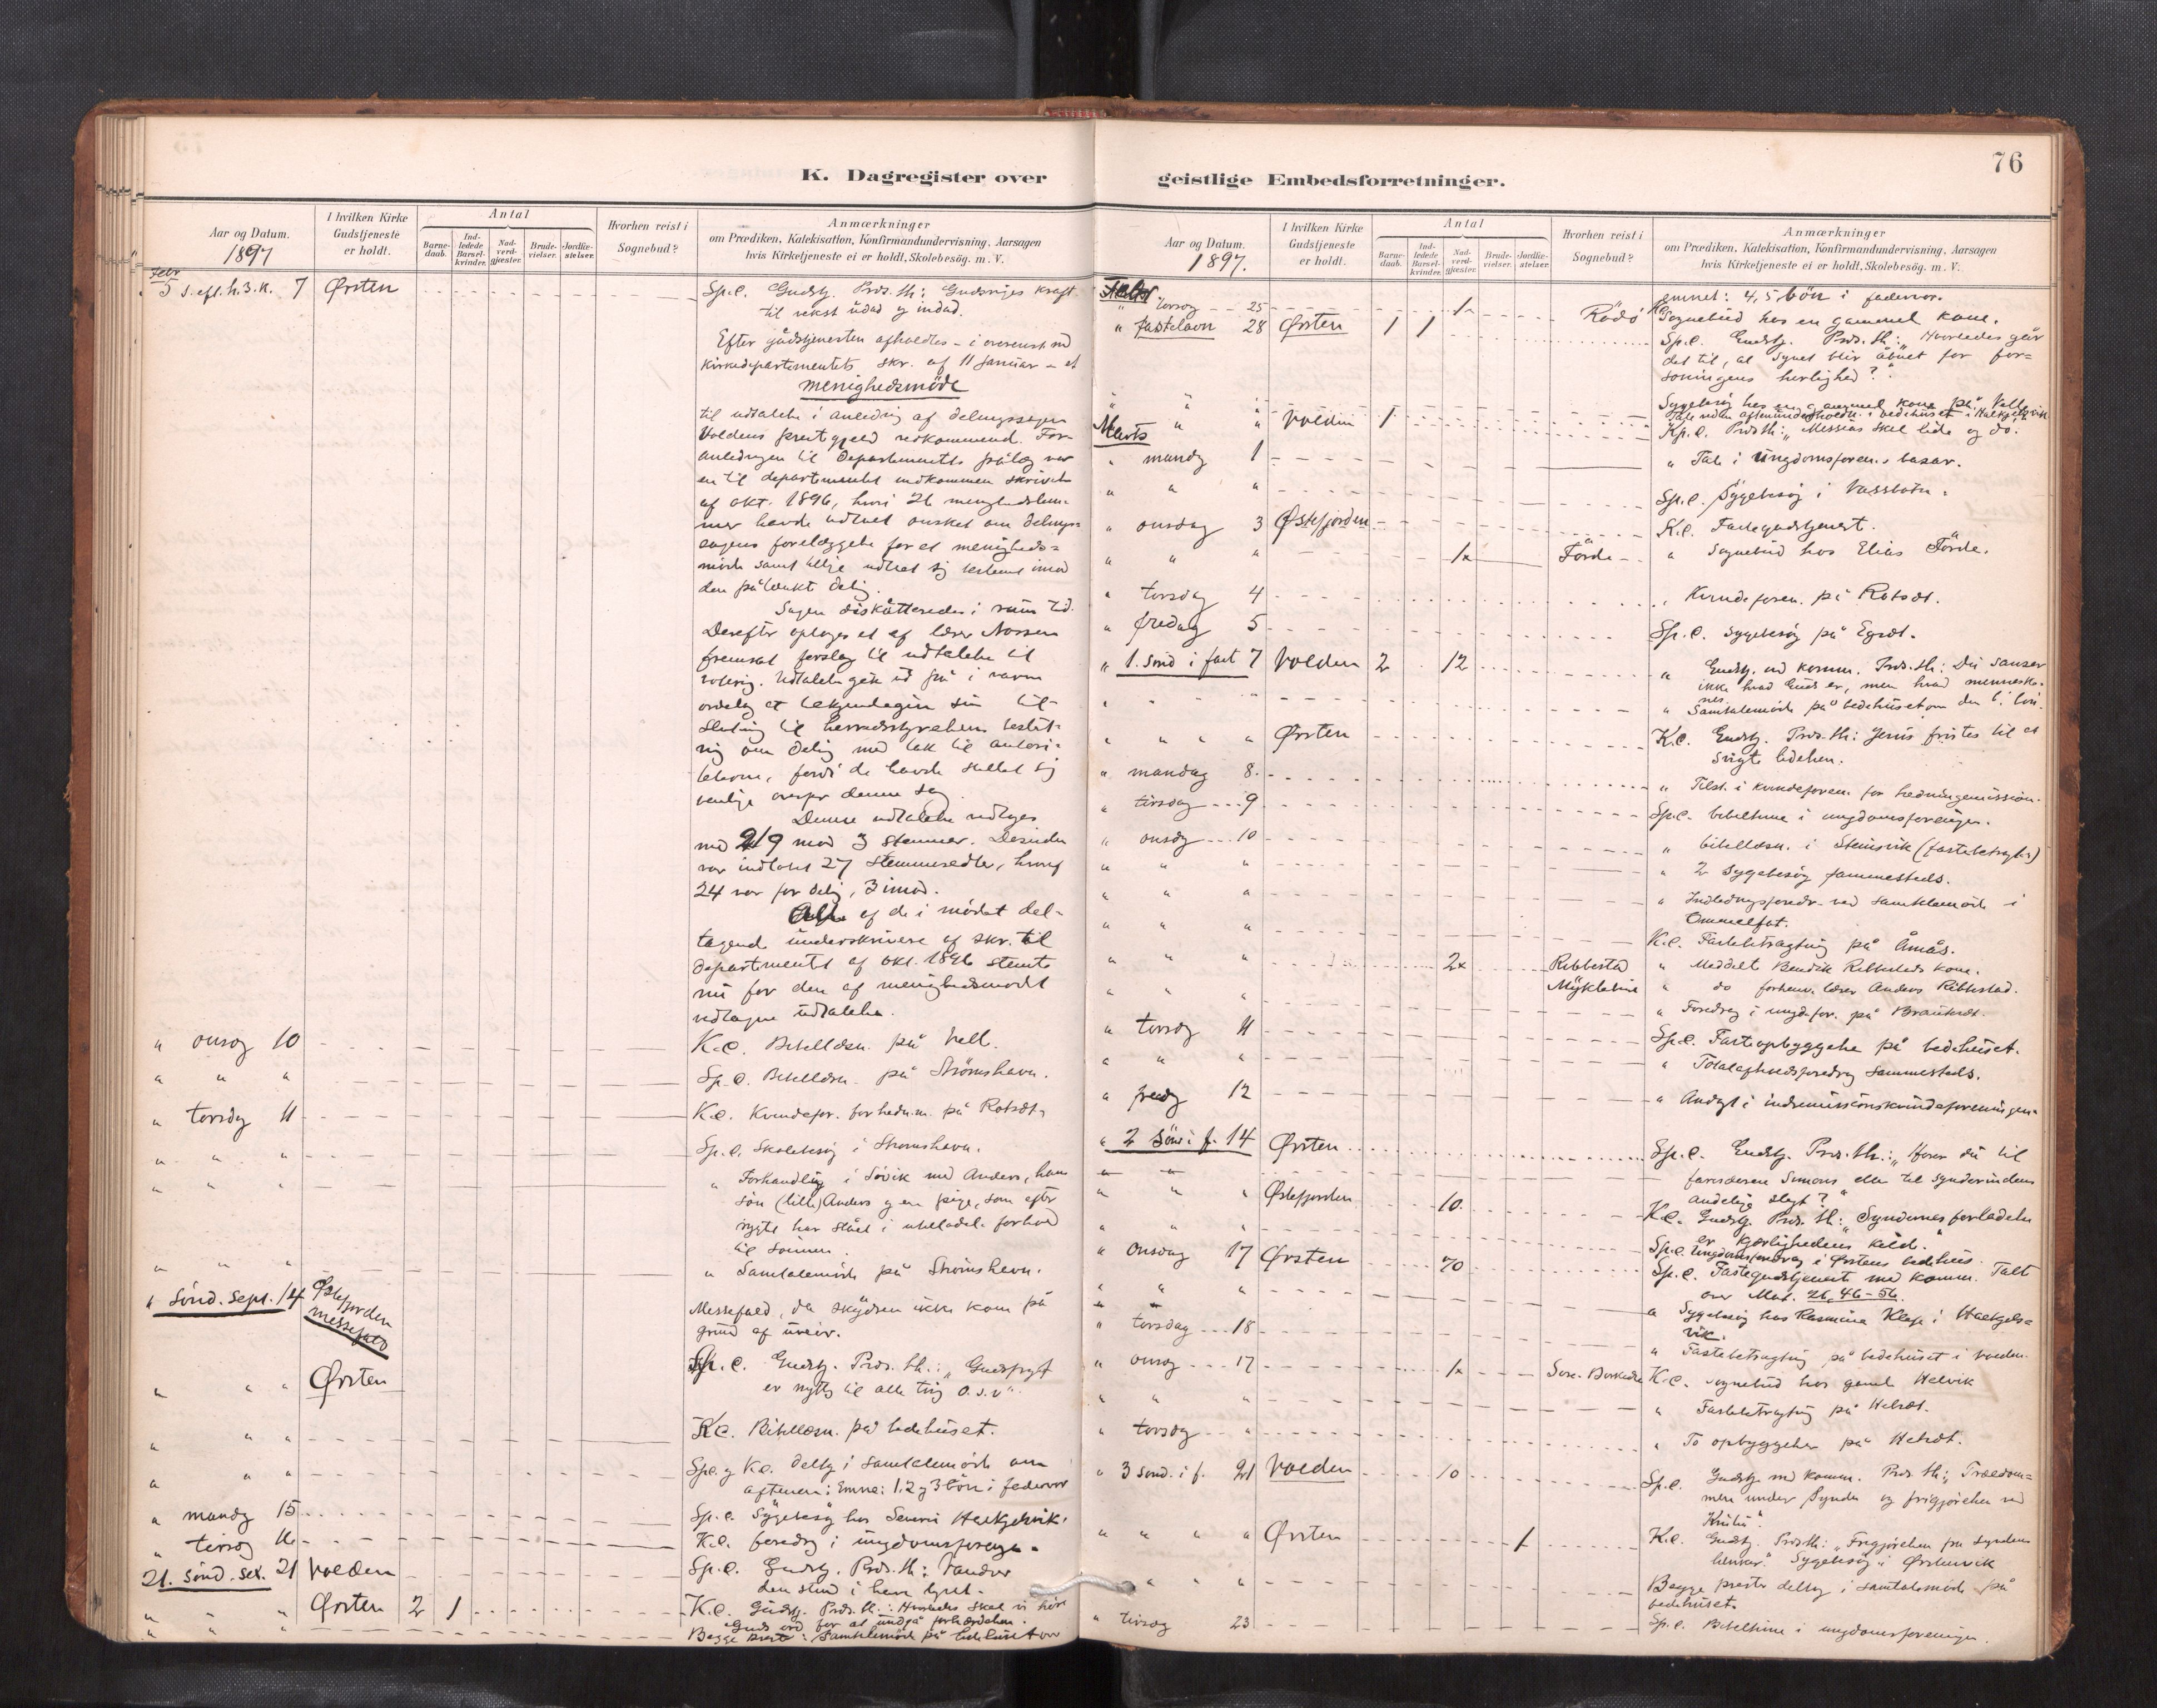 76
K. Dagregister over
geistlige Embedsforretninger.
Aar og Datum.
1897
I hvilken Kirke
Gudstjeneste
er holdt.
Antal
Barne-
daab.
Ind-
ledede
Barsel-
kvinder.
Nad-
verd-
gjæster.
Brude-
vielser.
Jordfæ-
stelser.
Hvorhen reist i
Sognebud?
Anmærkninger
om Prædiken, Katekisation, Konfirmandundervisning, Aarsagen
hvis Kirketjeneste ei er holdt, Skolebesøg. m. V.
Febr
5 S. eft. h. 3. k. 7 Ørsten Sp. C. Gudstj. Prds. th: Gudsriges kraft
til vekst udad og indad.
Efter gudstjenesten afholdtes - i overenst. med
kirkedepartementets skr. af 11 januar - et
menighedsmöde
til udtalelse i anledning af delingssagen
Voldens prestegjeld vedkommend. For-
anledningen til departementets pålæg var
en til departementet indkommen skrivelse
af okt. 1896, hvori 26 menighedslem-
mer havde udtalt önsket om delings-
sagens foreleggelse for et menigheds-
möde samt tillige udtalt sig bestemt imod
den påtænkte deling.
Sagen diskutteredes i rum tid.
Derefter optoges et af lærer
fremsat forslag til udtalelse til
votering. Udtalelsen gik ud på i varme
ordelag at tilkjendegive sin til-
slutning til herredsstyrelsens
om deling med tak til autori-
teterne, fordi de havde stillet sig
venlige overfor denne sag.
Denne udtalelse vedtoges
med 219 mod 3 stemmer. Desuden
var indlevert 27 stemmesedler, hvoraf
24 var for deling, 3 imod.
Alle af de i mödet del-
tagende underskrivere af skr. til
departementet af okt. 1896 stemte
nu for den af menighedsmödet
vedtagne udtalelse.
" onsdag 10 K.C. Bibellæsn. på Vell.
" " " Sp. C. Bibellæsn. på Strömshavn.
" torsdag 11 K.C. Kvindefor. for hedn.m. på Rotsæt.
" " " Sp. C. Skolebesøg i Strömshavn.
" " " " Forhandling i Søvik med Anders, hans
sön (lille) Anders og en pige, som efter
rygte har stået i utilladel. forhold
til sönnen.
" " " " Samtalemöde på Strömshavn.
" Sönd. Sept. 14 Østefjorden Messefald Messefald, da skydsen ikke kom på
grund af uveir.
" " " Ørsten Sp. C. Gudstj. Prds. th: "Gudsfrygt
er nyttig til alle ting o.s.v."
" " " K.C. Bibellæsn. på bedehuset.
" " " Sp.C. og K.C. deltog i samtalemöde om
aftenen: Emne: 1. 2 og 3 bön i fadervor
" mandag 15 Sp. C. Sygebesøg hos Severin Hækgelsvik.
" tirsdag 16 K.C. foredrag i ungdomsforeningen.
21. Sönd. Sex. 21 Volden Sp. C. Gudstj. Prds. th:
" " " Ørsten 2 1 K.C. Gudstj. Prds. th: Hvorledes skal vi höre
Guds ord for at undgå forhærdelsen.
" " " Begge prester: Samtalemöde på bedehuset over
Aar og Datum.
1897.
I hvilken Kirke
Gudstjeneste
er holdt.
Antal
Barne-
daab.
Ind-
ledede
Barsel-
kvinder.
Nad-
verd-
gjæster.
Brude-
vielser.
Jordfæ-
stelser.
Hvorhen reist i
Sognebud?
Anmærkninger
om Prædiken, Katekisation, Konfirmandundervisning, Aarsagen
hvis Kirketjeneste ei er holdt, Skolebesøg. m. V.
emnet: 4, 5 bön i fadervor.
" torsdag 25 1 Sognebud hos en gammel kone.
" fastelavn 28 Ørsten 1 1 Sp. C. Gudstj. Prds. th: "Hvorledes går
det til, at synet blir åbnet for for-
soningens herlighed?"
" " " Sygebesøg hos en gammel kone på Vell
" " " Volden 1 Kp. C. Prds th: "Messias skal lide og dö.
Marts
" mandag 1 " Tale i Ungdomsforen.s basar.
" " " Sp. C. Sygebesøg i Vassbotn.
" onsdag 3 Østefjorden K.C. Fastegudstjenest.
" " " 1 Förde " Sognebud hos Elias Förde.
" torsdag 4 " Kvindeforen. på Rotsæt.
" fredag 5 Sp. C. Sygebesøg på Egset.
" 1. Sönd i fast 7 Volden 2 12 " Gudstj. med komm. Prds. th: Du sanser
ikke hvad Guds er, men hvad menneske-
nes
" Samtalemöde på bedehuset om den 6. bön.
" " " " Ørsten K.C. Gudstj. Prds. th: Jesus fristes til at
svigte lidelsen.
" mandag 8. " Tilst. i kvindeforen. for hedningemission.
" tirsdag 9 Sp. C. bibeltime i ungdomsforeningen.
" onsdag 10 " bibellæsn. i Steinsvik (fastebetragtn.)
" " " " 2 Sygebesøg sammesteds.
" " " " Indledningsforedr. ved samtalemöde i
Ommelfat.
" " " K.C. Fastebetragtning på Åmås.
" " " 2 Ribbestad " Meddelt Bendik Ribbesteds kone.
Myklebust " do forhenv. lærer Anders Ribbestad.
" " " " Foredrag i ungd.for. på
" torsdag 11 Sp. C. Fasteopbyggelse på bedehuset.
" " " " Totalafholdsforedrag sammesteds.
" fredag 12 " Andagt i indremissionskvindeforeningen.
" 2 Sönd i f. 14 Ørsten Sp. C. Gudstj. Prds. th: "Hører du til
farisæeren Simons eller til Synderindens
åndelige slegt?"
" " " Østefjorden 10 K.C. Gudstj. Prds. th: "Syndernes forladelse
er kjærlighedens kild."
" " " Sp. C. Ungdomsforedrag i Ørstens bedehus.
" onsdag 17 Ørsten 70 Sp. C. Fastegudstjenest med komm. Talt
over Mat. 26, 46-56.
" " " " Sygebesøg hos Rasmina Klep i Hækgels-
vik.
" torsdag 18 " Fastebetragtning på bedehuset i Volden.
" onsdag 17 1 K.C. Sognebud hos gamle Helvik
" " " " Fastebetragtning på Helsæt.
" torsdag " " To opbyggelser på Helsæt.
" 3 sönd. i f. 21 Volden 10 Sp. C. Gudstj. med komm. Prds. th: "Trældom-
men under Synden og frigjörelsen ved
Kristus".
" " " " Ørsten 1 K.C. Gudstj. Prds th: "Frigjörelsen fra syndens
lænker." Sygebesøg i Ørstenvik
" " " Begge prester deltog i samtalemöde på
bedehuset.
" tirsdag 23 Sp. C. Bibeltime i ungdomsforeningen.